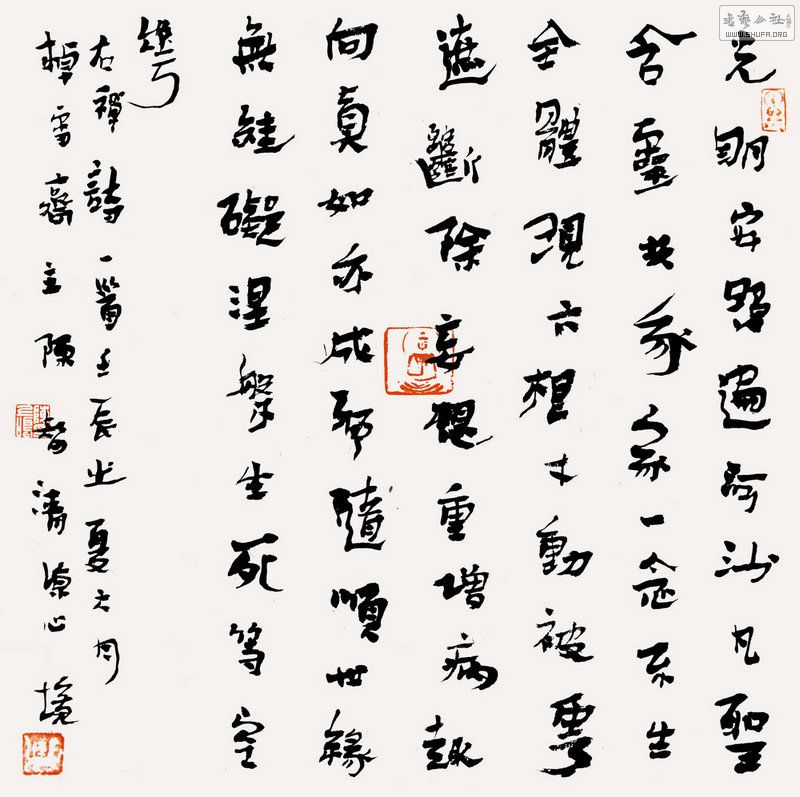 光明寂照遍河沙凡聖
含靈共我家一念不生
全體現六根才動被雲
遮斷除妄想重增病趣
向真如亦成邪隨順世緣
無罣礙涅槃生死等空
華
右禪詩一首壬辰之夏六月
雪齋主陳智 心境
書藝公社
WWW.SHUFA.ORG